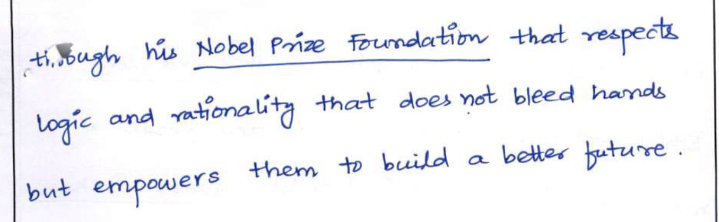 through his Nobel Prize Foundation that respects
logic and rationality that does not bleed hands
but empowers them to build a better future.